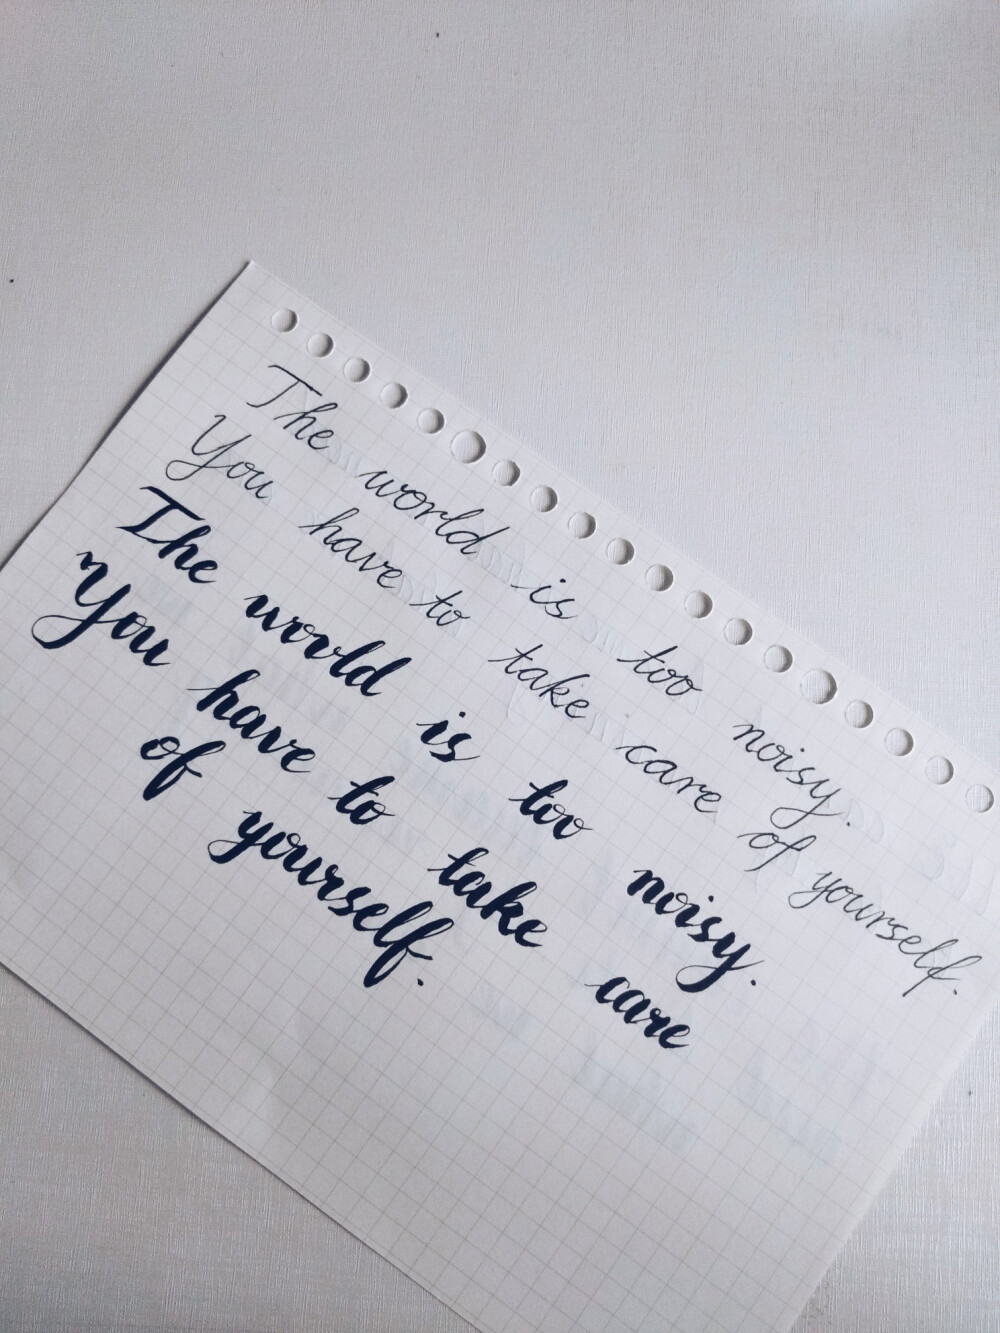 The world is too noisy.
You have to take care of yourself.
The world is too noisy.
You have to take care
of yourself.